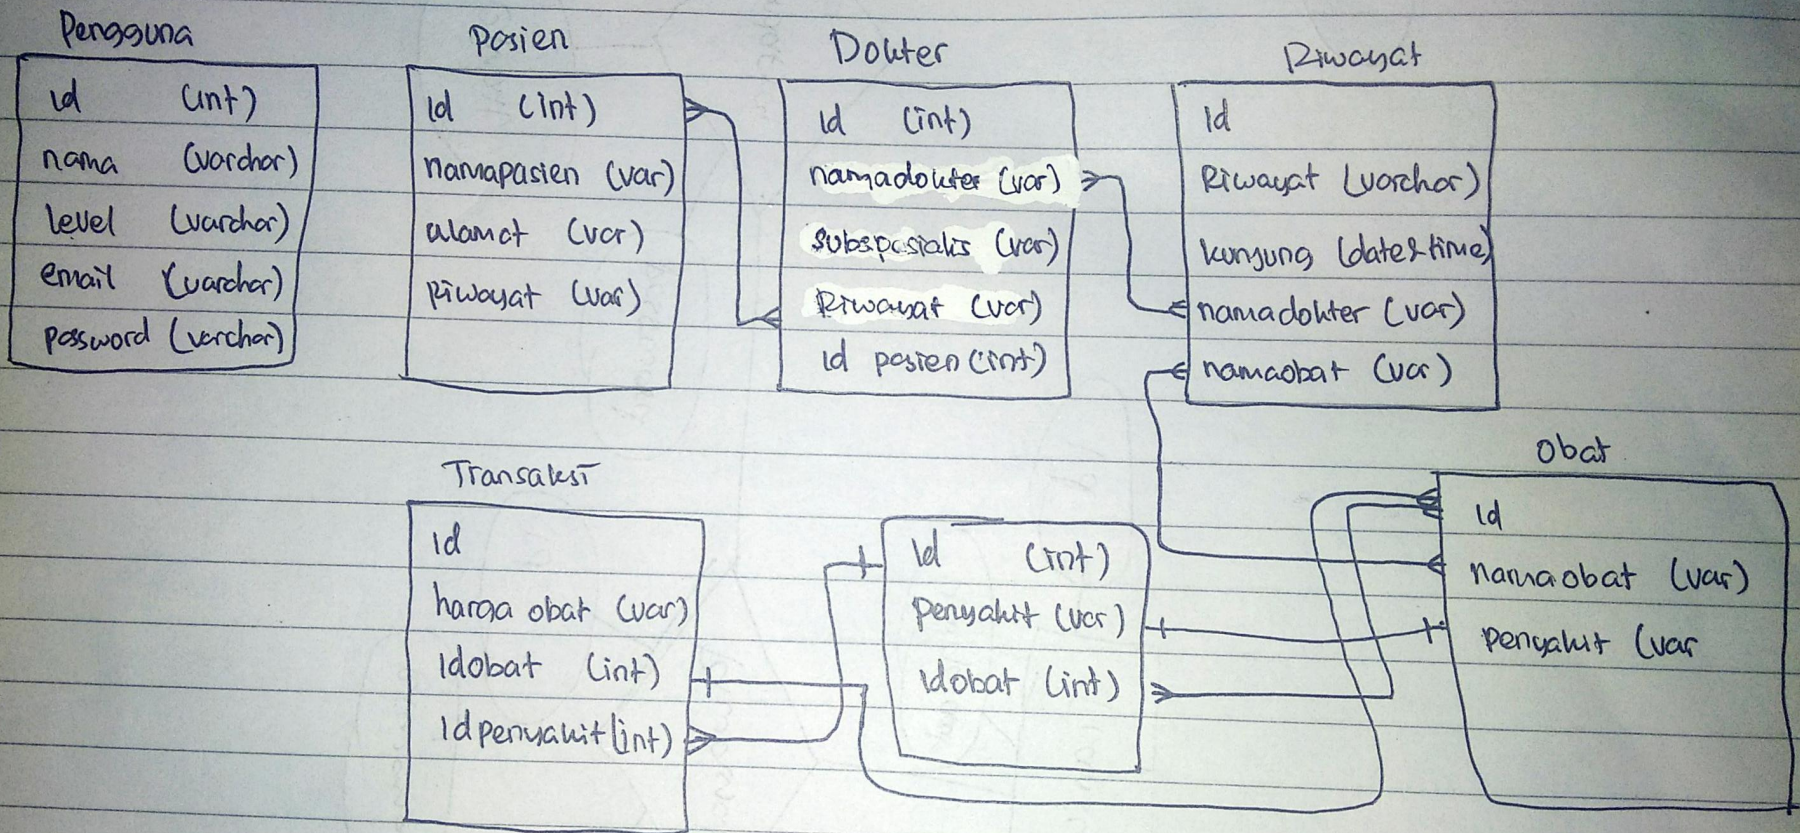 Pengguna
id (int)
nama (varchar)
level (varchar)
email (varchar)
password (varchar)
Pasien
id (int)
namapasien (var)
alamat (var)
Riwayat (var)
Dokter
id (int)
namadokter (var)
subspesialis (var)
Riwayat (var)
id pasien (int)
Riwayat
id
Riwayat (varchar)
kunjung (date&time)
namadokter (var)
namaobat (var)
Transaksi
id
harga obat (var)
idobat (int)
idpenyakit (int)
id (int)
penyakit (var)
idobat (int)
Obat
id
namaobat (var)
penyakit (var